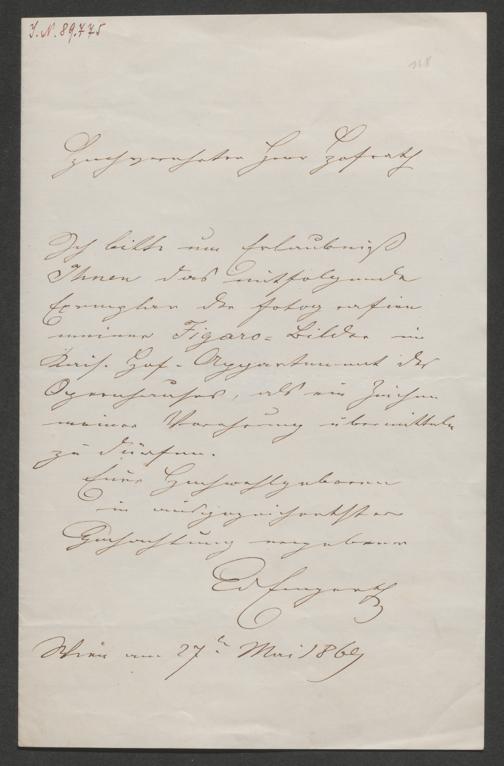 J. N. 89.775
118
Hochverehrter Herr Hofrath
Ich bitte um Erlaubniß
Ihnen das mitfolgende
Exemplar der Fotografien
meiner Figaro-Bilder im
Kais. Hof-Appartement des
Opernhauses, als ein Zeichen
meiner Verehrung übermitteln
zu dürfen.
Euer Hochwohlgeboren
in ausgezeichnetster
Hochachtung ergebener
Ed Engerth
Wien am 27ten Mai 1869